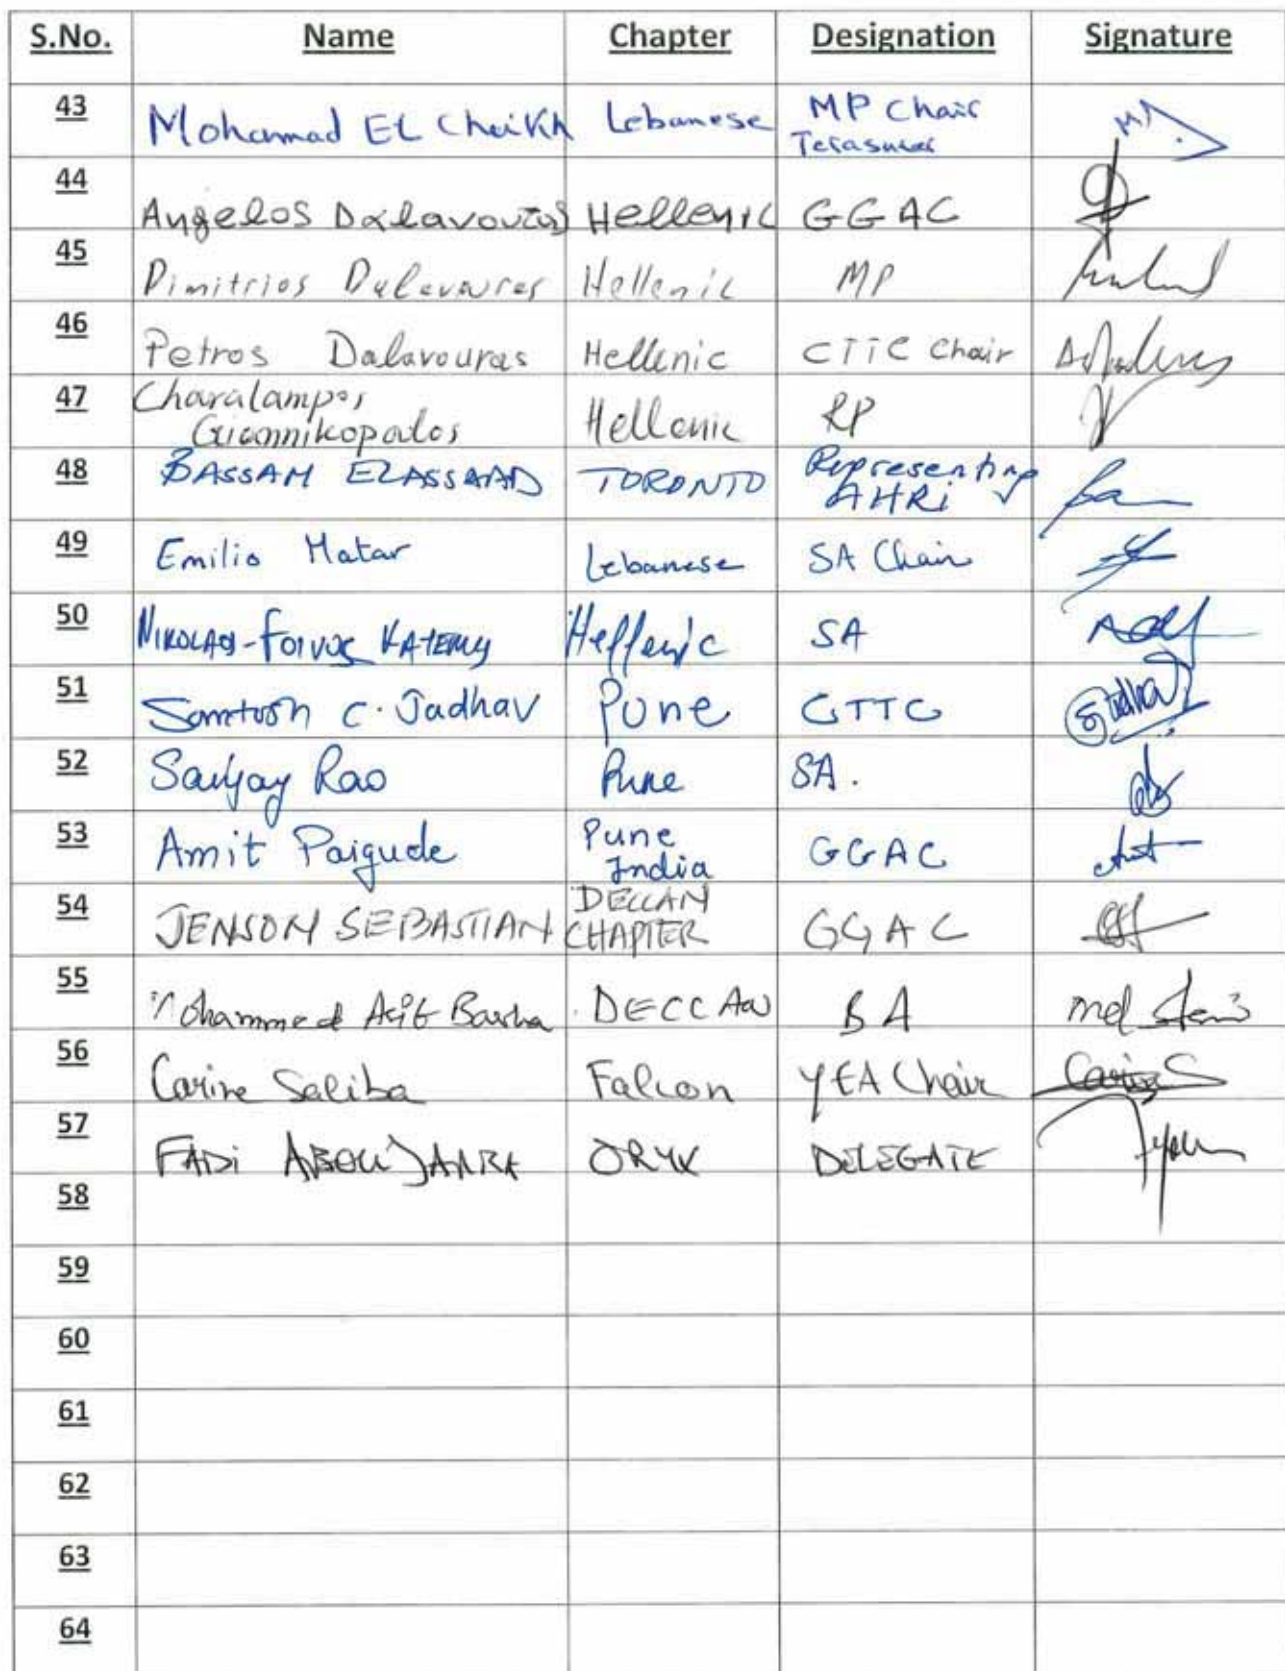 S.No. Name Chapter Designation Signature
43 Mohammad EL CheiKh Lebanese MP Chair
Terasurer
44 Angelos Dalavouras Hellenic GGAC
45 Dimitrios Dalavouras Hellenic MP
46 Petros Dalavouras Hellenic CTTC Chair
47 Charalampos
Giannikopoulos Hellenic RP
48 BASSAM ELASSAAD TORONTO Representing
AHRi
49 Emilio Matar Lebanese SA Chair
50 NIKOLAOS-FOIVOS Hellenic SA
51 Santosh C. Jadhav Pune CTTC
52 Sanjay Rao Pune SA.
53 Amit Paigude Pune
India GGAC
54 JENSON SEBASTIAN DECCAN
CHAPTER GGAC
55 Mohammed Asif Basha DECCAN BA
56 Carine Saliba Falcon YEA Chair
57 FADi ABOU JAMRA ORYX DELEGATE
58
59
60
61
62
63
64